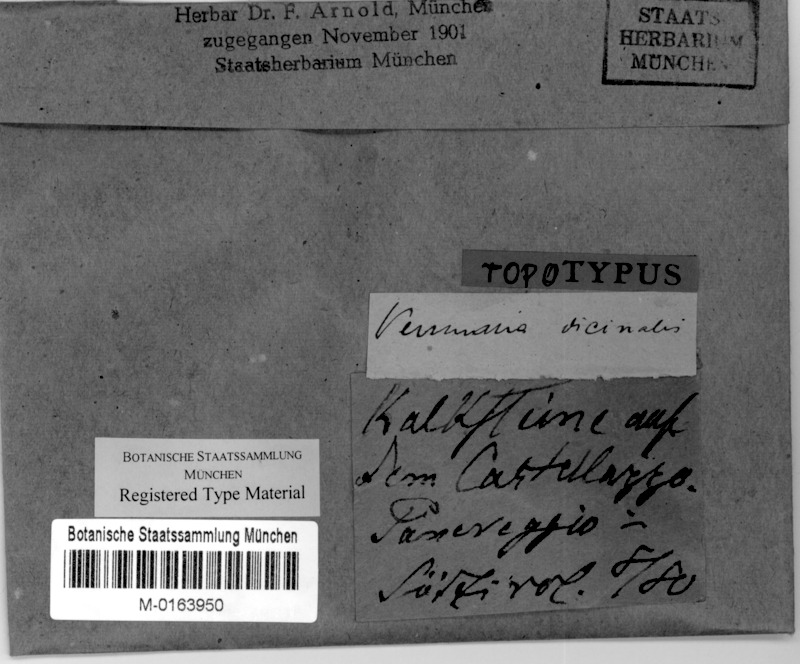 Herbar Dr. F. Arnold, München
zugegangen November 1901
Staatsherbarium München
STAATS
HERBARIUM
MÜNCHEN
TOPOTYPUS
Verrucaria vicinalis
Kalksteine auf
dem Castellazzo.
Paneveggio in
Südtirol. 8/80
BOTANISCHE STAATSSAMMLUNG
MÜNCHEN
Registered Type Material
Botanische Staatssammlung München
M-0163950